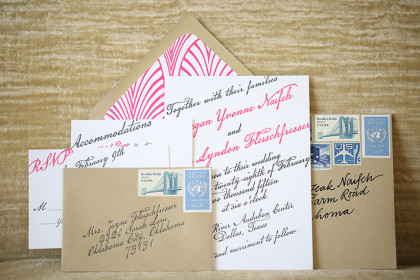 Together with their families
gan Yvonne Naifeh
and
Lyndon Fleischfresser
you to their wedding
twenty-eighth of February
two thousand fifteen
at six o'clock
River Audubon Center
Dallas, Texas
and merriment to follow
Accommodations
RSVP
February 9th
M
Mrs. Jayne Fleischfresser
Sarah Lane
Oklahoma City, Oklahoma
73131
eak Naifeh
arm Road
homa